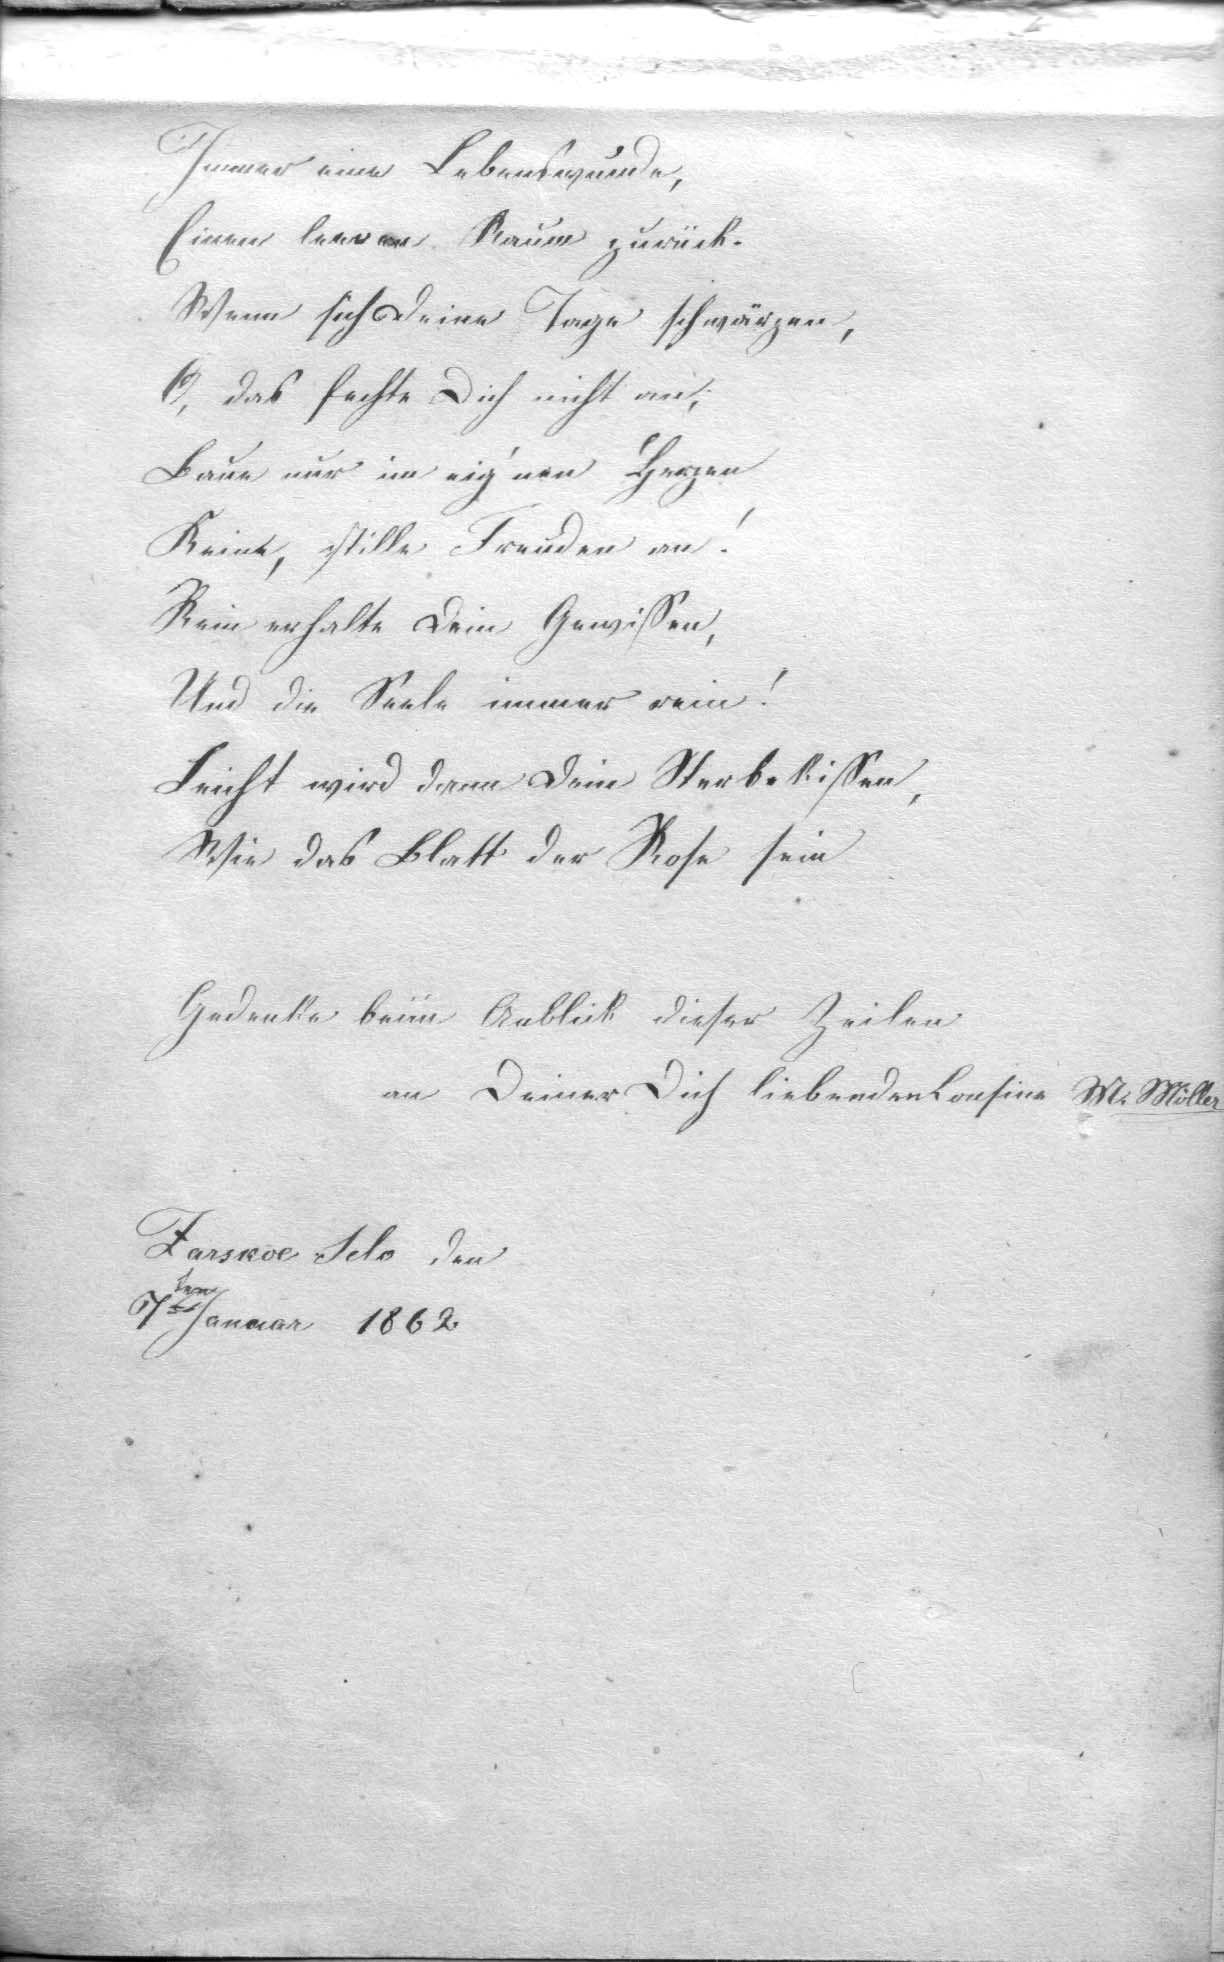 Immer eine Lebenswunde,
Einen leeren Raum zurück.
Wenn sich Deine Tage schwärzen,
O, das fechte Dich nicht an;
Baue nur im eig'nen Herzen
Reine, stille Freuden an!
Rein erhalte Dein Gewissen,
Und die Seele immer rein!
Leicht wird dann Dein Sterbekissen,
Wie das Blatt der Rose sein
Gedenke beim Anblick dieser Zeilen
an Deiner Dich liebenden Cousine M. Möller
Zarskoe Selo den
7ten Januar 1862